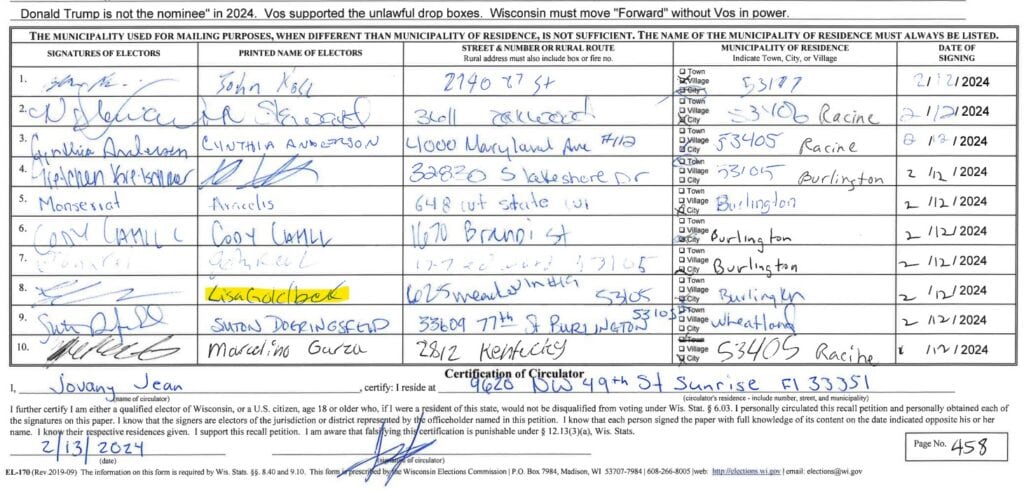 Donald Trump is not the nominee" in 2024. Vos supported the unlawful drop boxes. Wisconsin must move "Forward" without Vos in power.
THE MUNICIPALITY USED FOR MAILING PURPOSES, WHEN DIFFERENT THAN MUNICIPALITY OF RESIDENCE, IS NOT SUFFICIENT. THE NAME OF THE MUNICIPALITY OF RESIDENCE MUST ALWAYS BE LISTED.
SIGNATURES OF ELECTORS PRINTED NAME OF ELECTORS STREET & NUMBER OR RURAL ROUTE Rural address must also include box or fire no. MUNICIPALITY OF RESIDENCE Indicate Town, City, or Village DATE OF SIGNING
1. John Town Village City 2/12/2024
2. Town Village City 53406 Racine 2/12/2024
3. Cynthia Anderson CYNTHIA ANDERSON 4000 Maryland Ave #112 Town Village City 53405 Racine 2/12/2024
4. Gretchen 32830 S Lakeshore Dr Town Village City 53105 Burlington 2/12/2024
5. Monserrat Aracelis 648 State Town Village City Burlington 2/12/2024
6. CODY CAHILL CODY CAHILL 1670 St Town Village City Burlington 2/12/2024
7. 53105 Town Village City Burlington 2/12/2024
8. Lisa Goldbeck 625 53105 Town Village City Burlington 2/12/2024
9. SUTON 33609 77th St BURLINGTON 53105 Town Village City Wheatland 2/12/2024
10. Marcelino Garza 2812 Kentucky Town Village City 53405 Racine /12/2024
Certification of Circulator
I, Jovany Jean, certify: I reside at 9620 NW 49th St Sunrise Fl 33351
(name of circulator) (circulator's residence - include number, street, and municipality)
I further certify I am either a qualified elector of Wisconsin, or a U.S. citizen, age 18 or older who, if I were a resident of this state, would not be disqualified from voting under Wis. Stat. § 6.03. I personally circulated this recall petition and personally obtained each of
the signatures on this paper. I know that the signers are electors of the jurisdiction or district represented by the officeholder named in this petition. I know that each person signed the paper with full knowledge of its content on the date indicated opposite his or her
name. I know their respective residences given. I support this recall petition. I am aware that falsifying this certification is punishable under § 12.13(3)(a), Wis. Stats.
2/13/2024
(date) (signature of circulator)
Page No. 458
EL-170 (Rev 2019-09) The information on this form is required by Wis. Stats. §§. 8.40 and 9.10. This form is prescribed by the Wisconsin Elections Commission | P.O. Box 7984, Madison, WI 53707-7984 | 608-266-8005 |web: http://elections.wi.gov | email: elections@wi.gov